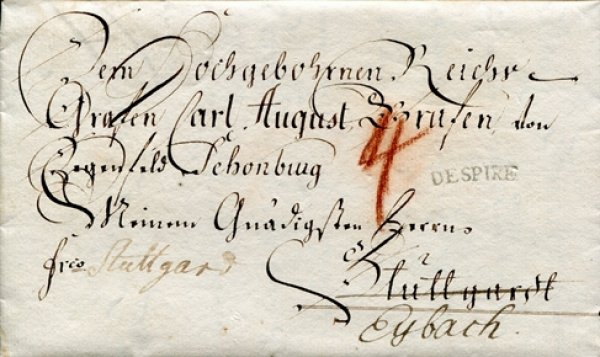 Dem Hochgebohrnen Reichs-
Grafen Carl August, Grafen von
Degenfeld Schonburg
4
DE SPIRE
Meinem Gnädigsten Herrn
frco Stuttgard
Stuttgardt
Eybach.